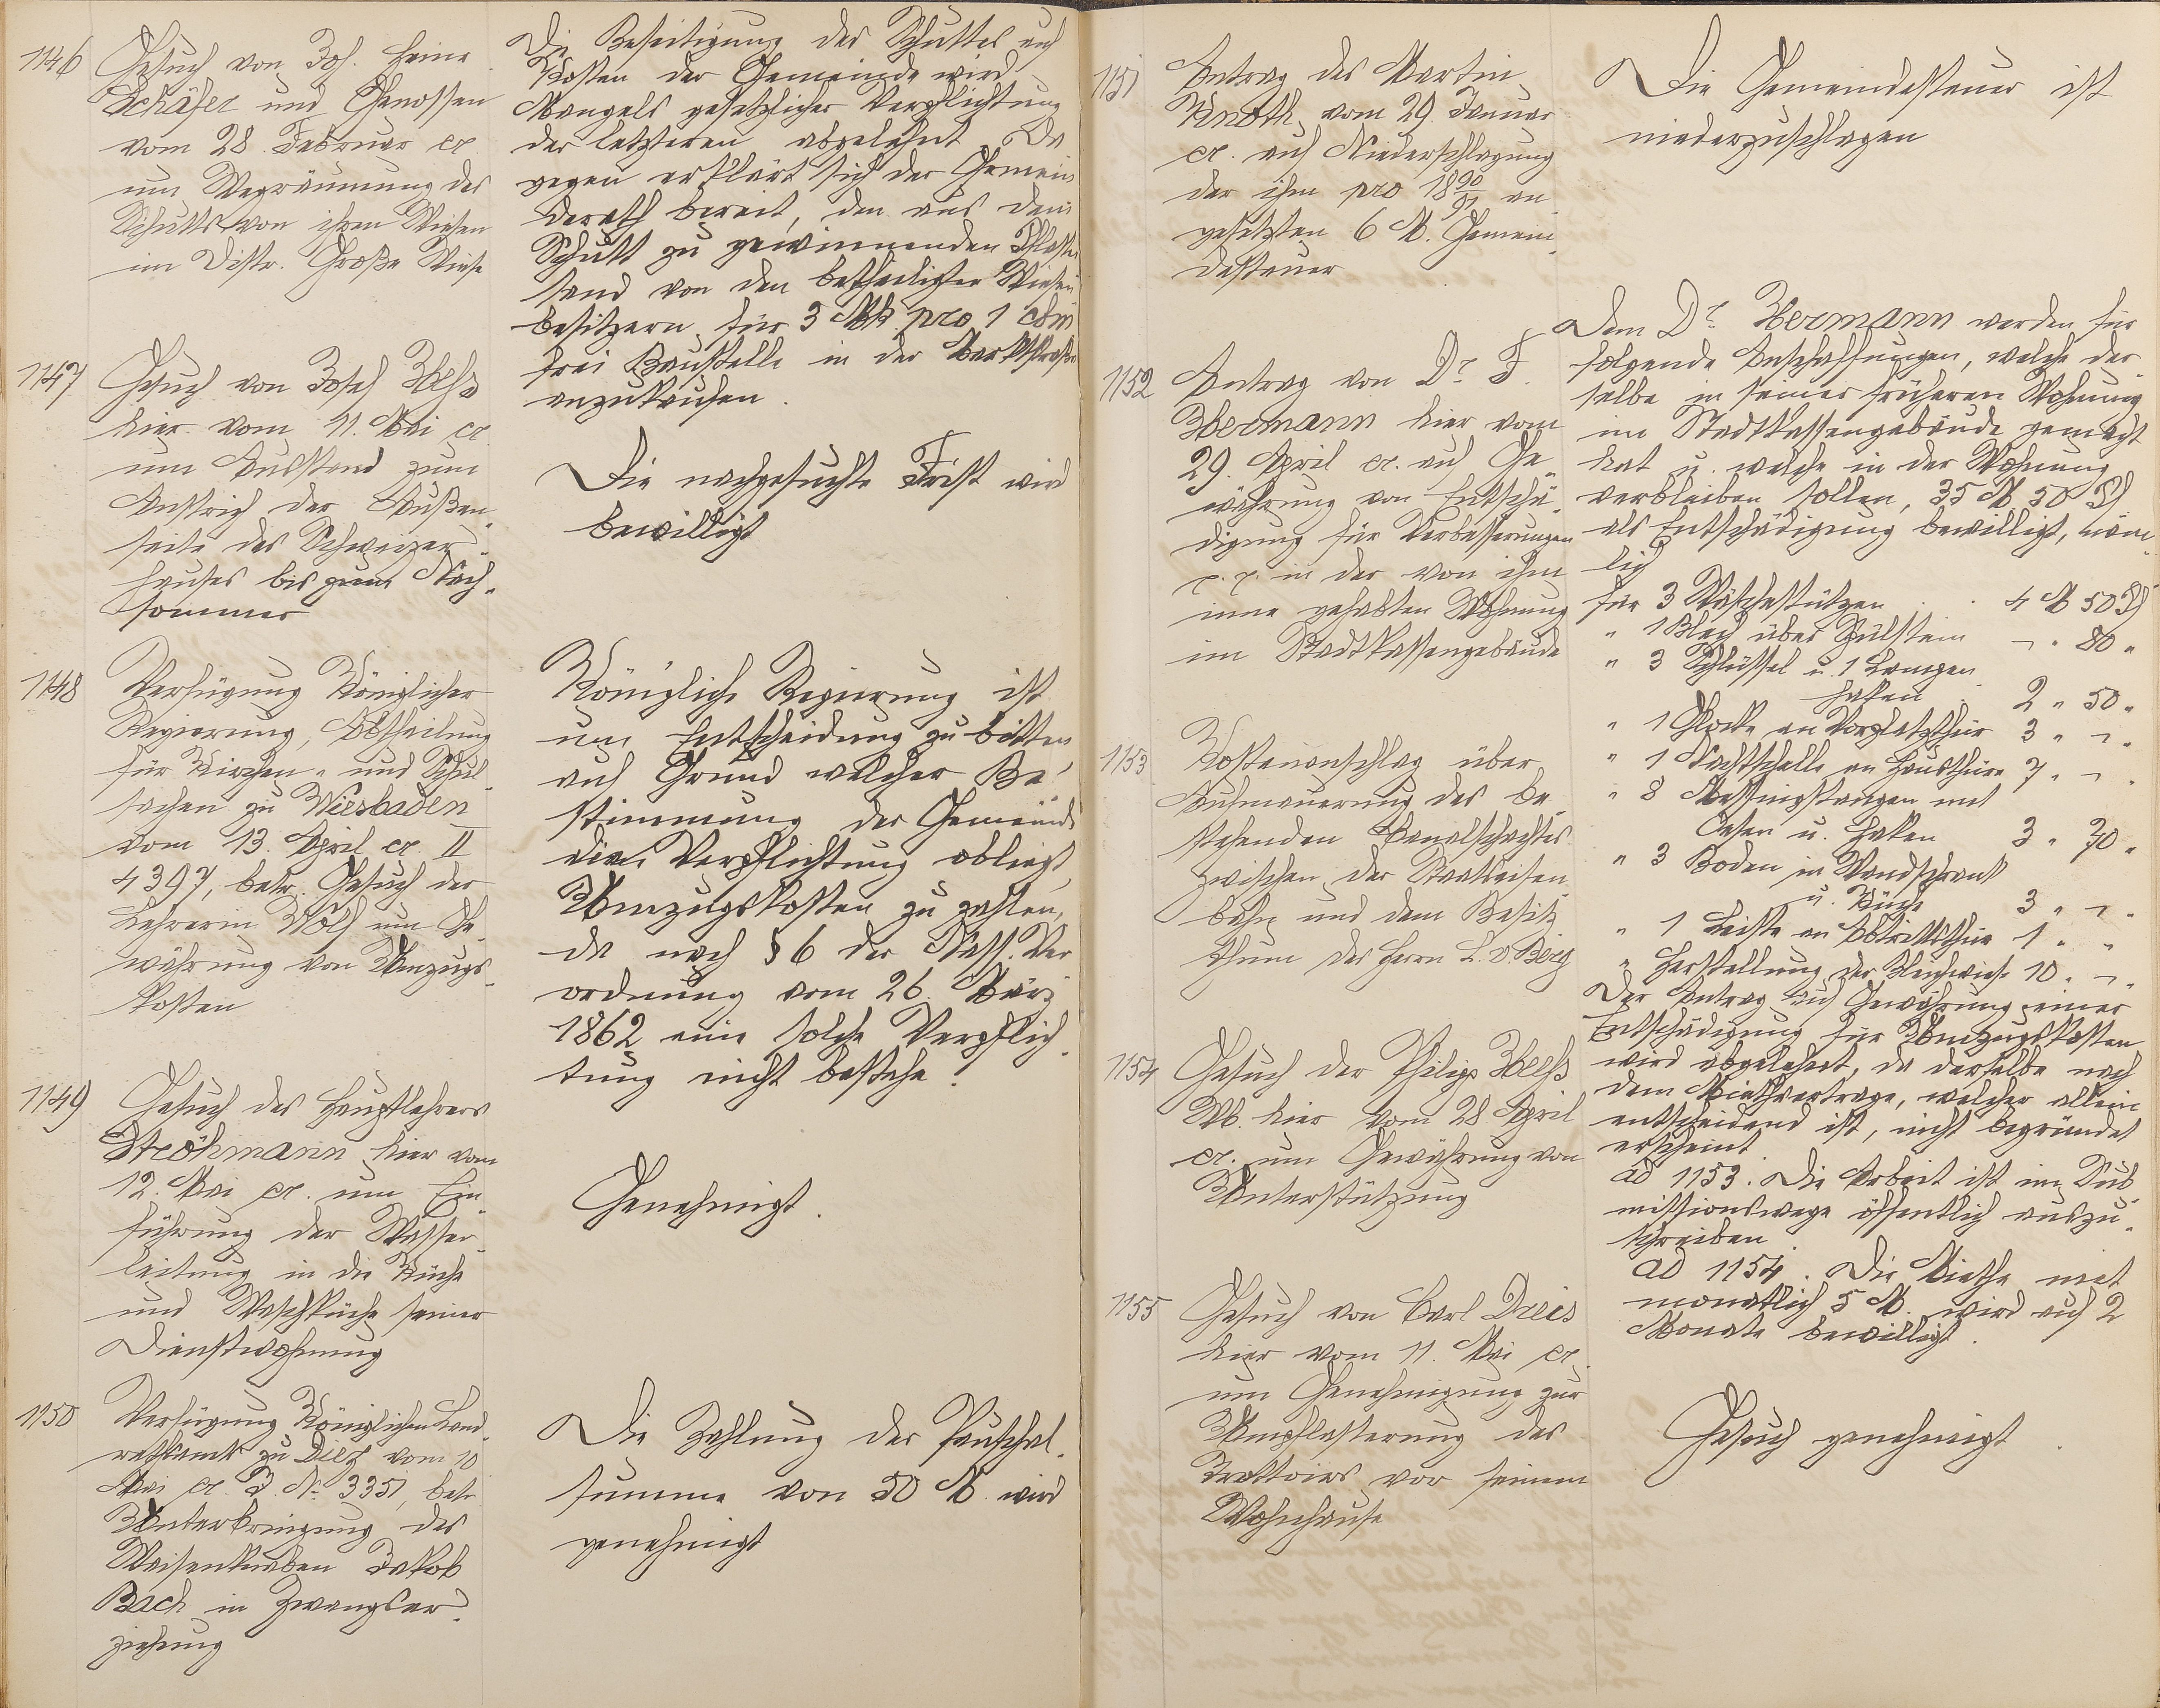 1146
Gesuch von Joh. Heinr.
Schäfer und Genossen
vom 28. Februar cr.
um Wegräumung des
Schutts von ihren Wiesen
im Distr. Große Wiese
Die Beseitigung des Schuttes auf
Kosten der Gemeinde wird
Mangels gesetzlicher Verpflichtung
der letzteren abgelehnt. Da
gegen erklärt sich der Gemein
derath bereit, den aus dem
Schutt zu gewinnenden Pflaster
sand von den betheiligten Wiesen
besitzern für 3 Mk pro 1 cbm
frei Baustelle in der Marktstraße
anzukaufen.
1147
Gesuch von Josef
hier vom 11. Mai cr.
um Ausstand zum
Anstrich der Außen-
seite des Schweizer-
hauses bis zum Nach-
sommer
Die nachgesuchte Frist wird
bewilligt
1148
Verfügung Königlicher
Regierung, Abtheilung
für Kirchen- und Schul-
sachen zu Wiesbaden
vom 13. April cr. II
4397, betr. Gesuch der
Lehrerin Wolf um Ge-
währung von Umzugs-
kosten
Königliche Regierung ist
um Entscheidung zu bitten
auf Grund welcher Be-
stimmung der Gemeinde
die Verpflichtung obliegt,
Umzugskosten zu zahlen,
da nach § 6 der Nass. Ver
ordnung vom 26. März
1862 eine solche Verpflich-
tung nicht bestehe!
1149
Gesuch des Hauptlehrers
Ströhmann hier vom
12. Mai cr. um Ein-
führung der Wasser-
leitung in die Küche
und Waschküche seiner
Dienstwohnung
Genehmigt.
1150
Verfügung Königlichen Land-
rathsamts zu Diez vom 10
Mai cr. J. No 3351, betr.
Unterbringung des
Waisenknaben Jakob
Bach in Zwangser-
ziehung
Die Zahlung der Pauschal-
summe von 50 M. wird
genehmigt
1151
Antrag des Martin
Knoth vom 29. Januar
cr. auf Niederschlagung
der ihm pro 1890/91 an-
gesetzten 6 M. Gemein-
desteuer
Die Gemeindesteuer ist
niederzuschlagen
1152
Antrag von Dr. F.
Hermann hier vom
29. April cr. auf Ge-
währung von Entschä-
digung für Verbesserungen
p.p. in der von ihm
inne gehabten Wohnung
im Stadtkassengebäude
Dem Dr. Hermann werden für
folgende Anschaffungen, welche der-
selbe in seiner früheren Wohnung
im Stadtkassengebäude gemacht
hat u. welche in der Wohnung
verbleiben sollen, 35 M 50 Pf
als Entschädigung bewilligt, näm-
lich
für 3 Wäschestützen . . 4 M 50 Pf
" 1 Blech über Spülstein ¬ " 80 "
" 3 Schlüssel u. 1 Lampen
haken 2 " 50 "
" 1 Glocke an Vorplatzthür 3 " ¬ "
" 1 Nachtschelle an Hausthüre 7 " ¬ "
" 8 Messingstangen mit
Oesen u. Haken 3 " 70 "
" 3 Boden in Wandschrank
u. Küche 3 " ¬ "
" 1 Leiste an Abtrittsthür 1 " "
" Herstellung der Bleichwiese 10 " ¬ "
Der Antrag auf Gewährung einer
Entschädigung für Umzugskosten
wird abgelehnt, da derselbe nach
dem Miethvertrage, welcher allein
entscheidend ist, nicht begründet
erscheint.
1153
Kostenanschlag über
Aufmauerung des be-
stehenden Canalschachtes
zwischen der Staatseisen-
bahn und dem Besitz
thum des Herrn L. v. Berg
ad 1153. Die Arbeit ist im Sub-
missionswege öffentlich auszu-
schreiben
1154
Gesuch der Philipp
Wb. hier vom 28. April
cr. um Gewährung von
Unterstützung
ad 1154. Die Miethe mit
monatlich 5 M. wird auf 2
Monate bewilligt.
1155
Gesuch von Carl Dreis
hier vom 11. Mai cr.
um Genehmigung zur
Umpflasterung des
Trottoirs vor seinem
Wohnhause
Gesuch genehmigt.